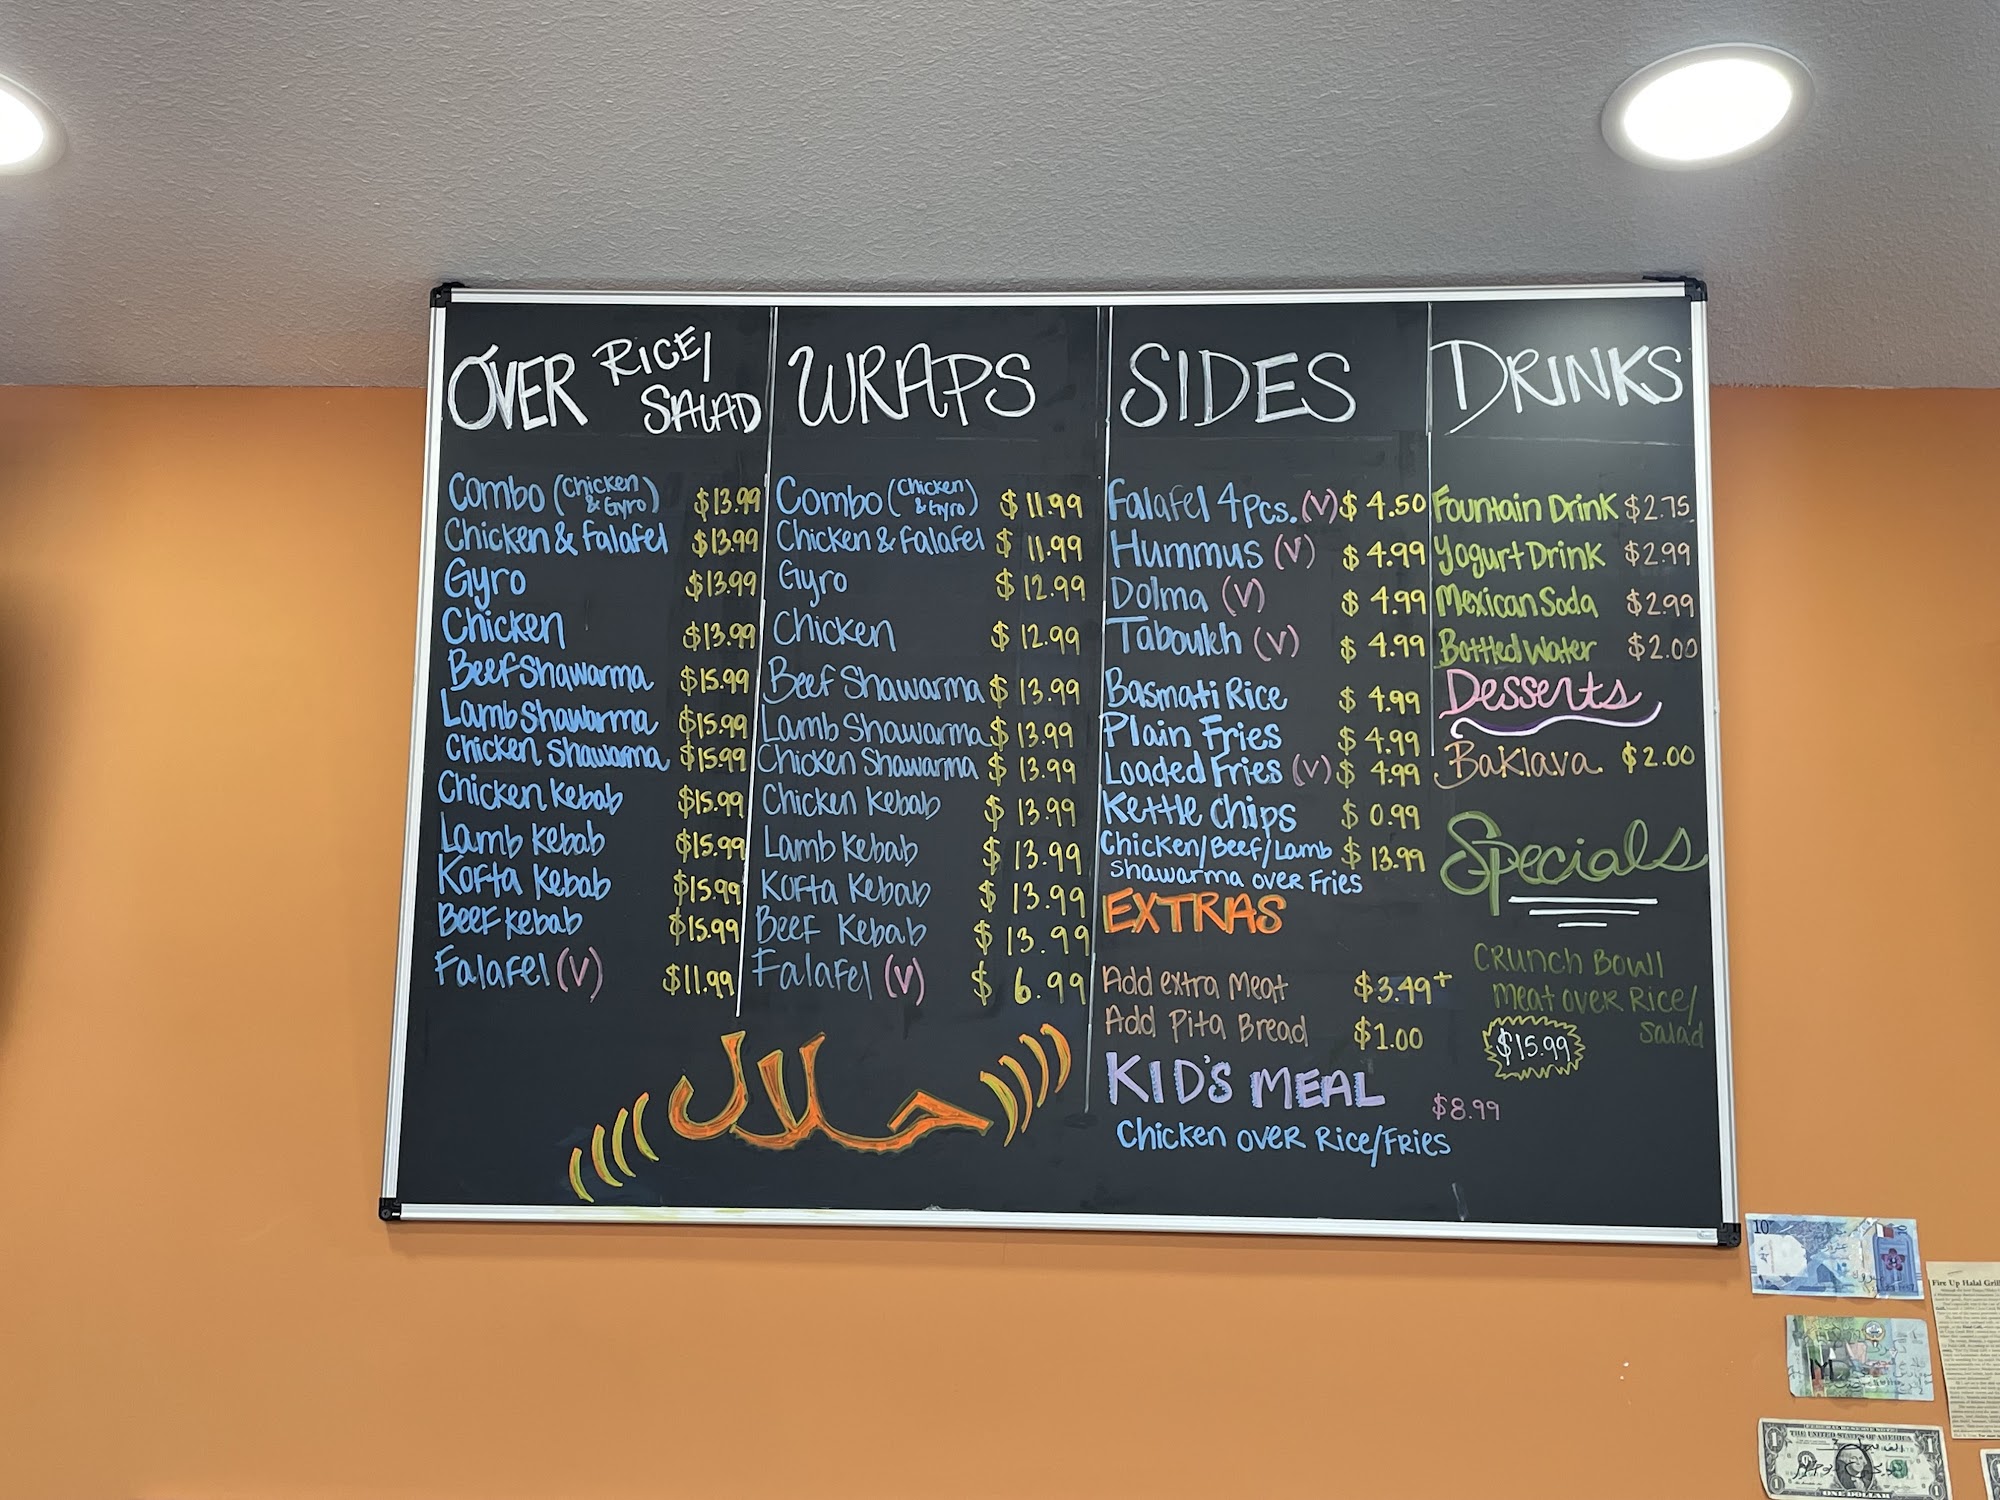 OVER RICE/
SALAD
Combo (Chicken & Gyro) $13.99
Chicken & Falafel $13.99
Gyro $13.99
Chicken $13.99
Beef Shawarma $15.99
Lamb Shawarma $15.99
Chicken Shawarma $15.99
Chicken Kebab $15.99
Lamb Kebab $15.99
Kofta Kebab $15.99
Beef Kebab $15.99
Falafel (V) $11.99
WRAPS
Combo (Chicken & Gyro) $11.99
Chicken & Falafel $11.99
Gyro $12.99
Chicken $12.99
Beef Shawarma $13.99
Lamb Shawarma $13.99
Chicken Shawarma $13.99
Chicken Kebab $13.99
Lamb Kebab $13.99
Kofta Kebab $13.99
Beef Kebab $13.99
Falafel (V) $6.99
حلال
SIDES
Falafel 4pcs. (V) $4.50
Hummus (V) $4.99
Dolma (V) $4.99
Tabouleh (V) $4.99
Basmati Rice $4.99
Plain Fries $4.99
Loaded Fries (V) $4.99
Kettle Chips $0.99
Chicken/Beef/Lamb $13.99
Shawarma over Fries
EXTRAS
Add extra Meat $3.49+
Add Pita Bread $1.00
KID'S MEAL $8.99
Chicken over Rice/Fries
DRINKS
Fountain Drink $2.75
Yogurt Drink $2.99
Mexican Soda $2.99
Bottled Water $2.00
Desserts
Baklava $2.00
Specials
Crunch Bowl
Meat over Rice/
Salad
$15.99
10
Fire Up Halal Gril
FEDERAL RESERVE NOTE
THE UNITED STATES OF AMERICA
ONE DOLLAR